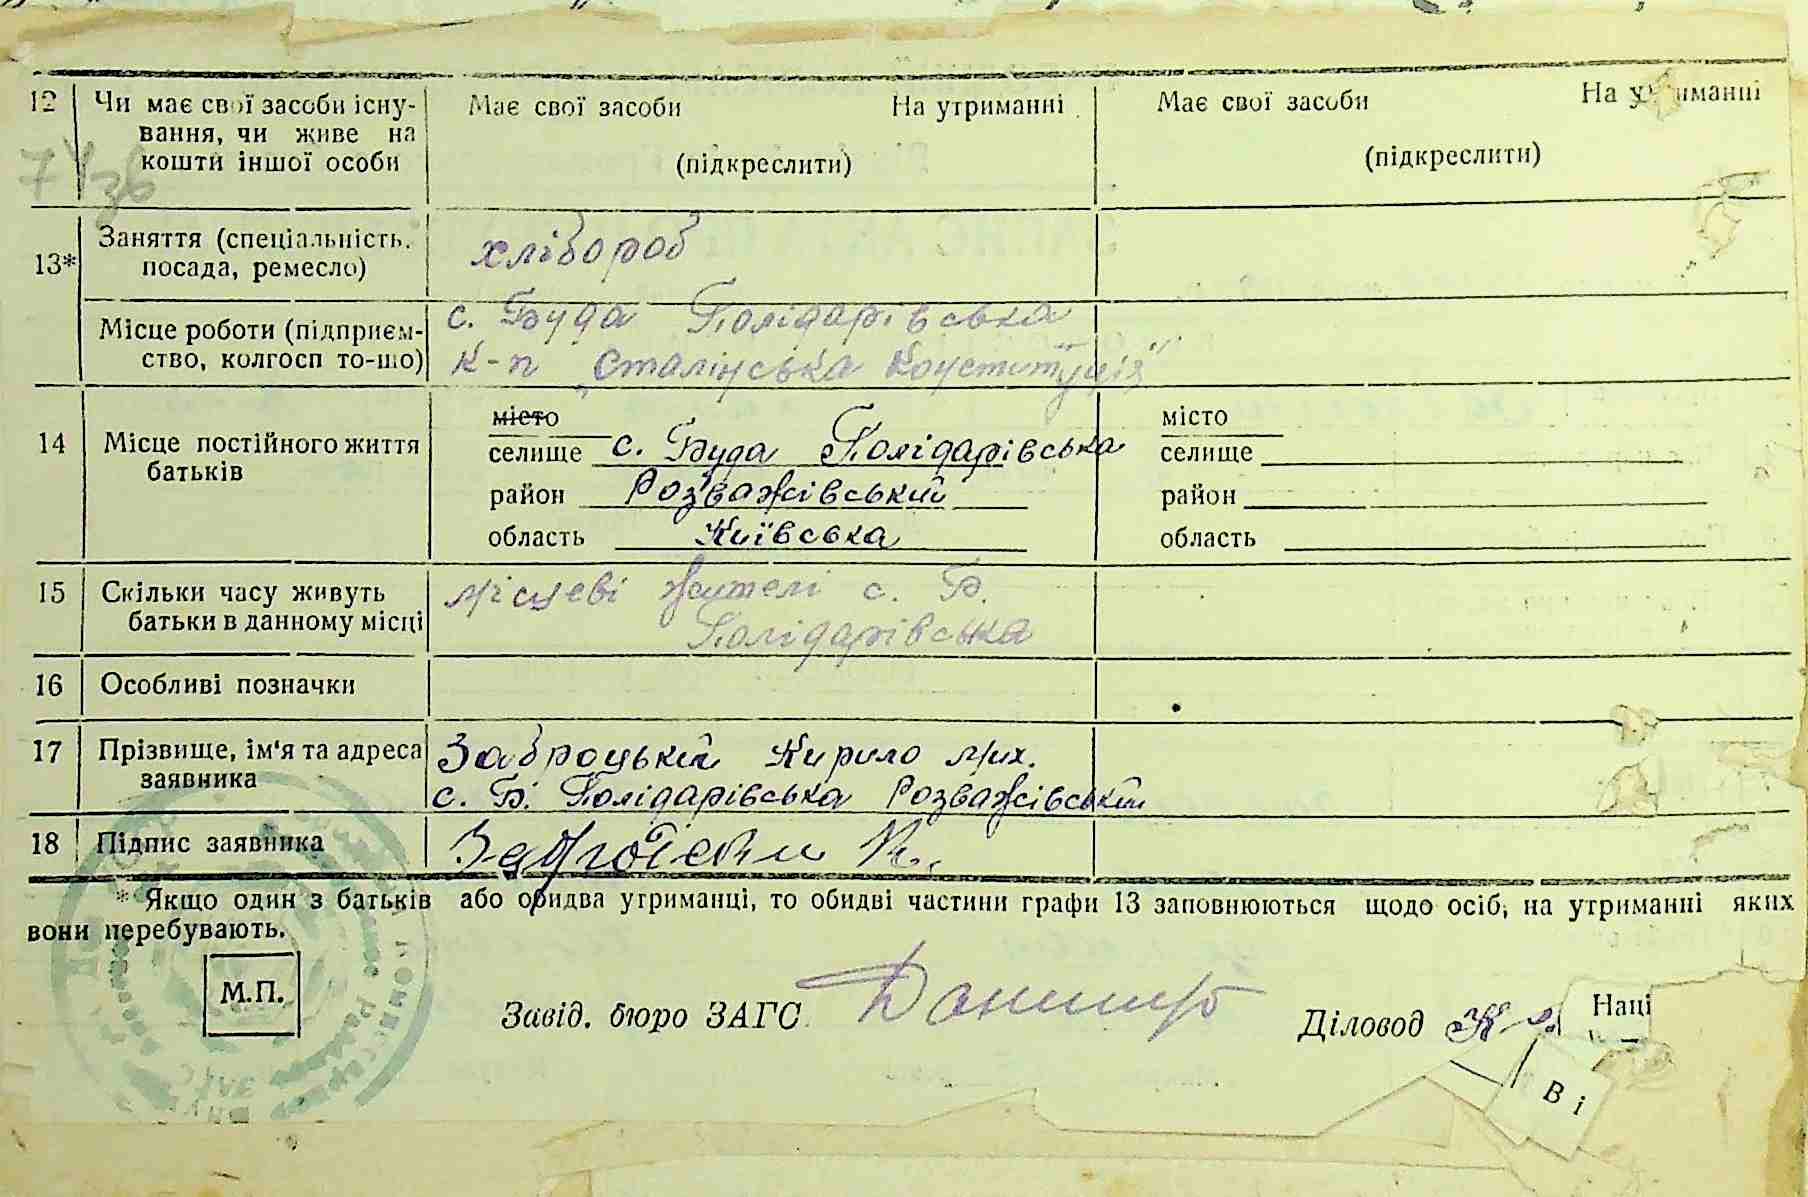 12 Чи має свої засоби існу- Має свої засоби На утриманні Має свої засоби На утриманні
вання, чи живе на
кошти іншої особи (підкреслити) (підкреслити)
13* Заняття (спеціальність, хлібороб
посада, ремесло)
Місце роботи (підприєм- с. Буда Полідарівська
ство, колгосп то-що) к-п „Сталінська Конституція"
місто місто
14 Місце постійного життя селище с. Буда Полідарівська селище
батьків
район Розважівський район
область Київська область
15 Скільки часу живуть місцеві жителі с. Б.
батьки в данному місці Полідарівська
16 Особливі позначки
17 Прізвище, ім'я та адреса Заброцький Кирило Мих.
заявника с. Б. Полідарівська Розважівський
18 Підпис заявника К.
* Якщо один з батьків або обидва утриманці, то обидві частини графи 13 заповнюються щодо осіб, на утриманні яких
вони перебувають.
М.П.
Завід. бюро ЗАГС Діловод
Наці
В і